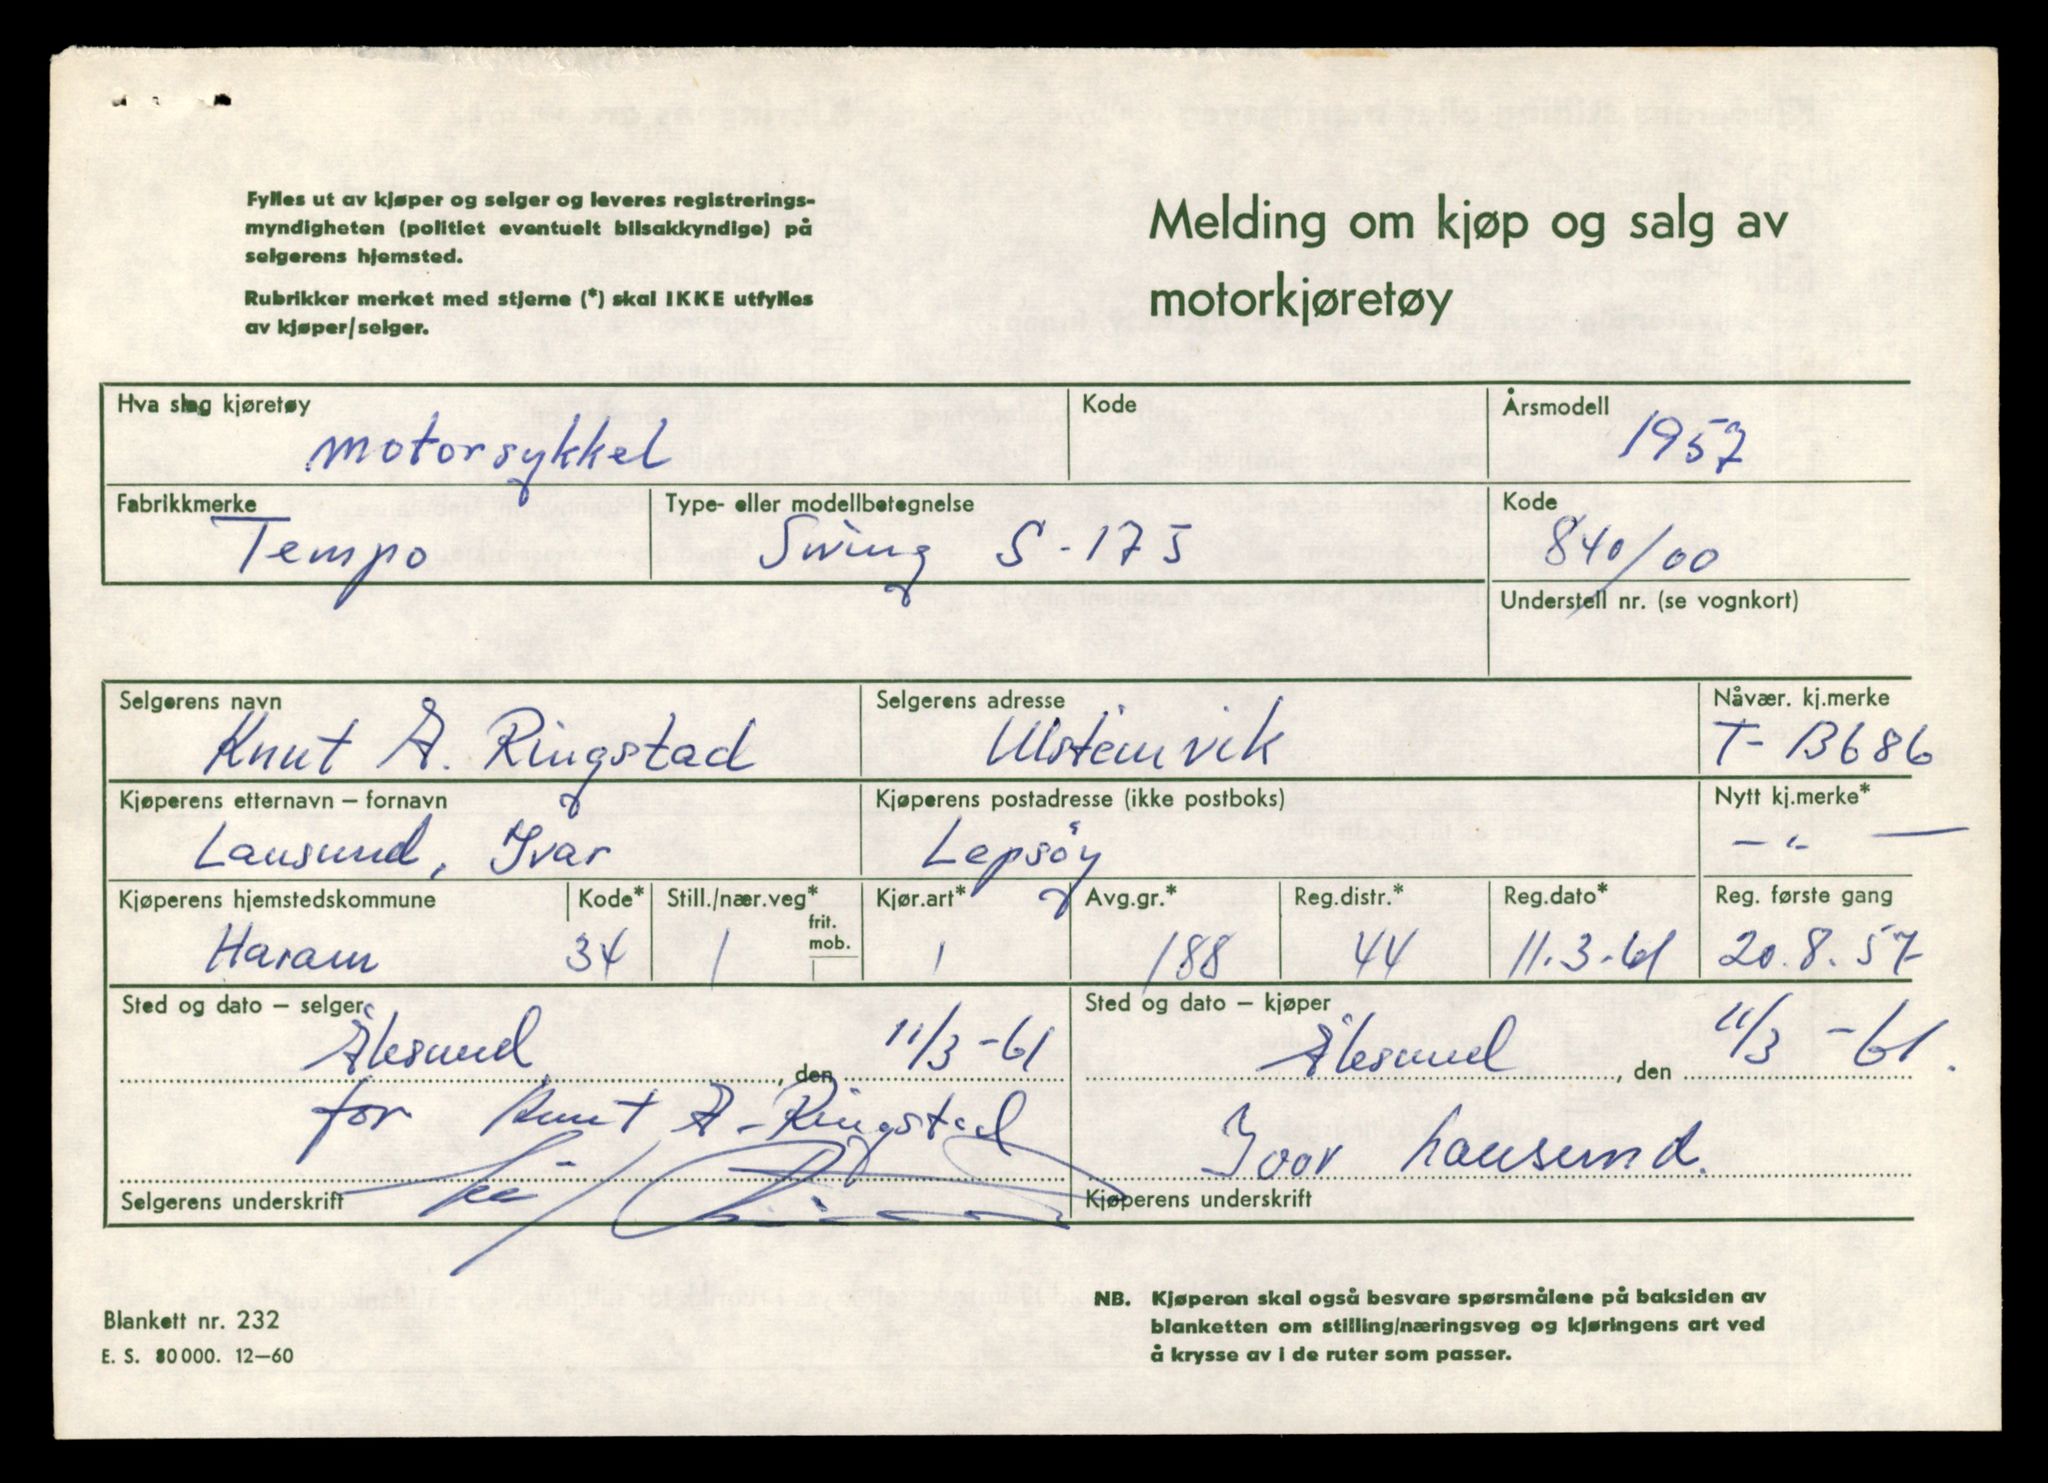 Fylles ut av kjøper og selger og leveres registrerings-
myndigheten (politiet eventuelt bilsakkyndige) på
selgerens hjemsted.
Rubrikker merket med stjerne (*) skal IKKE utfylles
av kjøper/selger.
Melding om kjøp og salg av
motorkjøretøy
Hva slag kjøretøy
motorsykkel
Kode
Årsmodell
1957
Fabrikkmerke
Tempo
Type- eller modellbetegnelse
Swing S-175
Kode
840/00
Understell nr. (se vognkort)
Selgerens navn
Knut A. Ringstad
Selgerens adresse
Ulsteinvik
Nåvær. kj.merke
T- B686
Kjøperens etternavn – fornavn
Lausund, Ivar
Kjøperens postadresse (ikke postboks)
Lepsöy
Nytt kj.merke*
— " —
Kjøperens hjemstedskommune
Haram
Kode*
34
Still./nær.veg*
1
frit.
mob.
Kjør.art*
1
Avg.gr.*
188
Reg.distr.*
44
Reg.dato*
11.3.61
Reg. første gang
20.8.57
Sted og dato – selger
Ålesund, den 11/3-61
for Knut A. Ringstad
Selgerens underskrift
Sted og dato – kjøper
Ålesund, den 11/3-61.
Ivar Lausund.
Kjøperens underskrift
Blankett nr. 232
E. S. 80 000. 12—60
NB. Kjøperen skal også besvare spørsmålene på baksiden av
blanketten om stilling/næringsveg og kjøringens art ved
å krysse av i de ruter som passer.